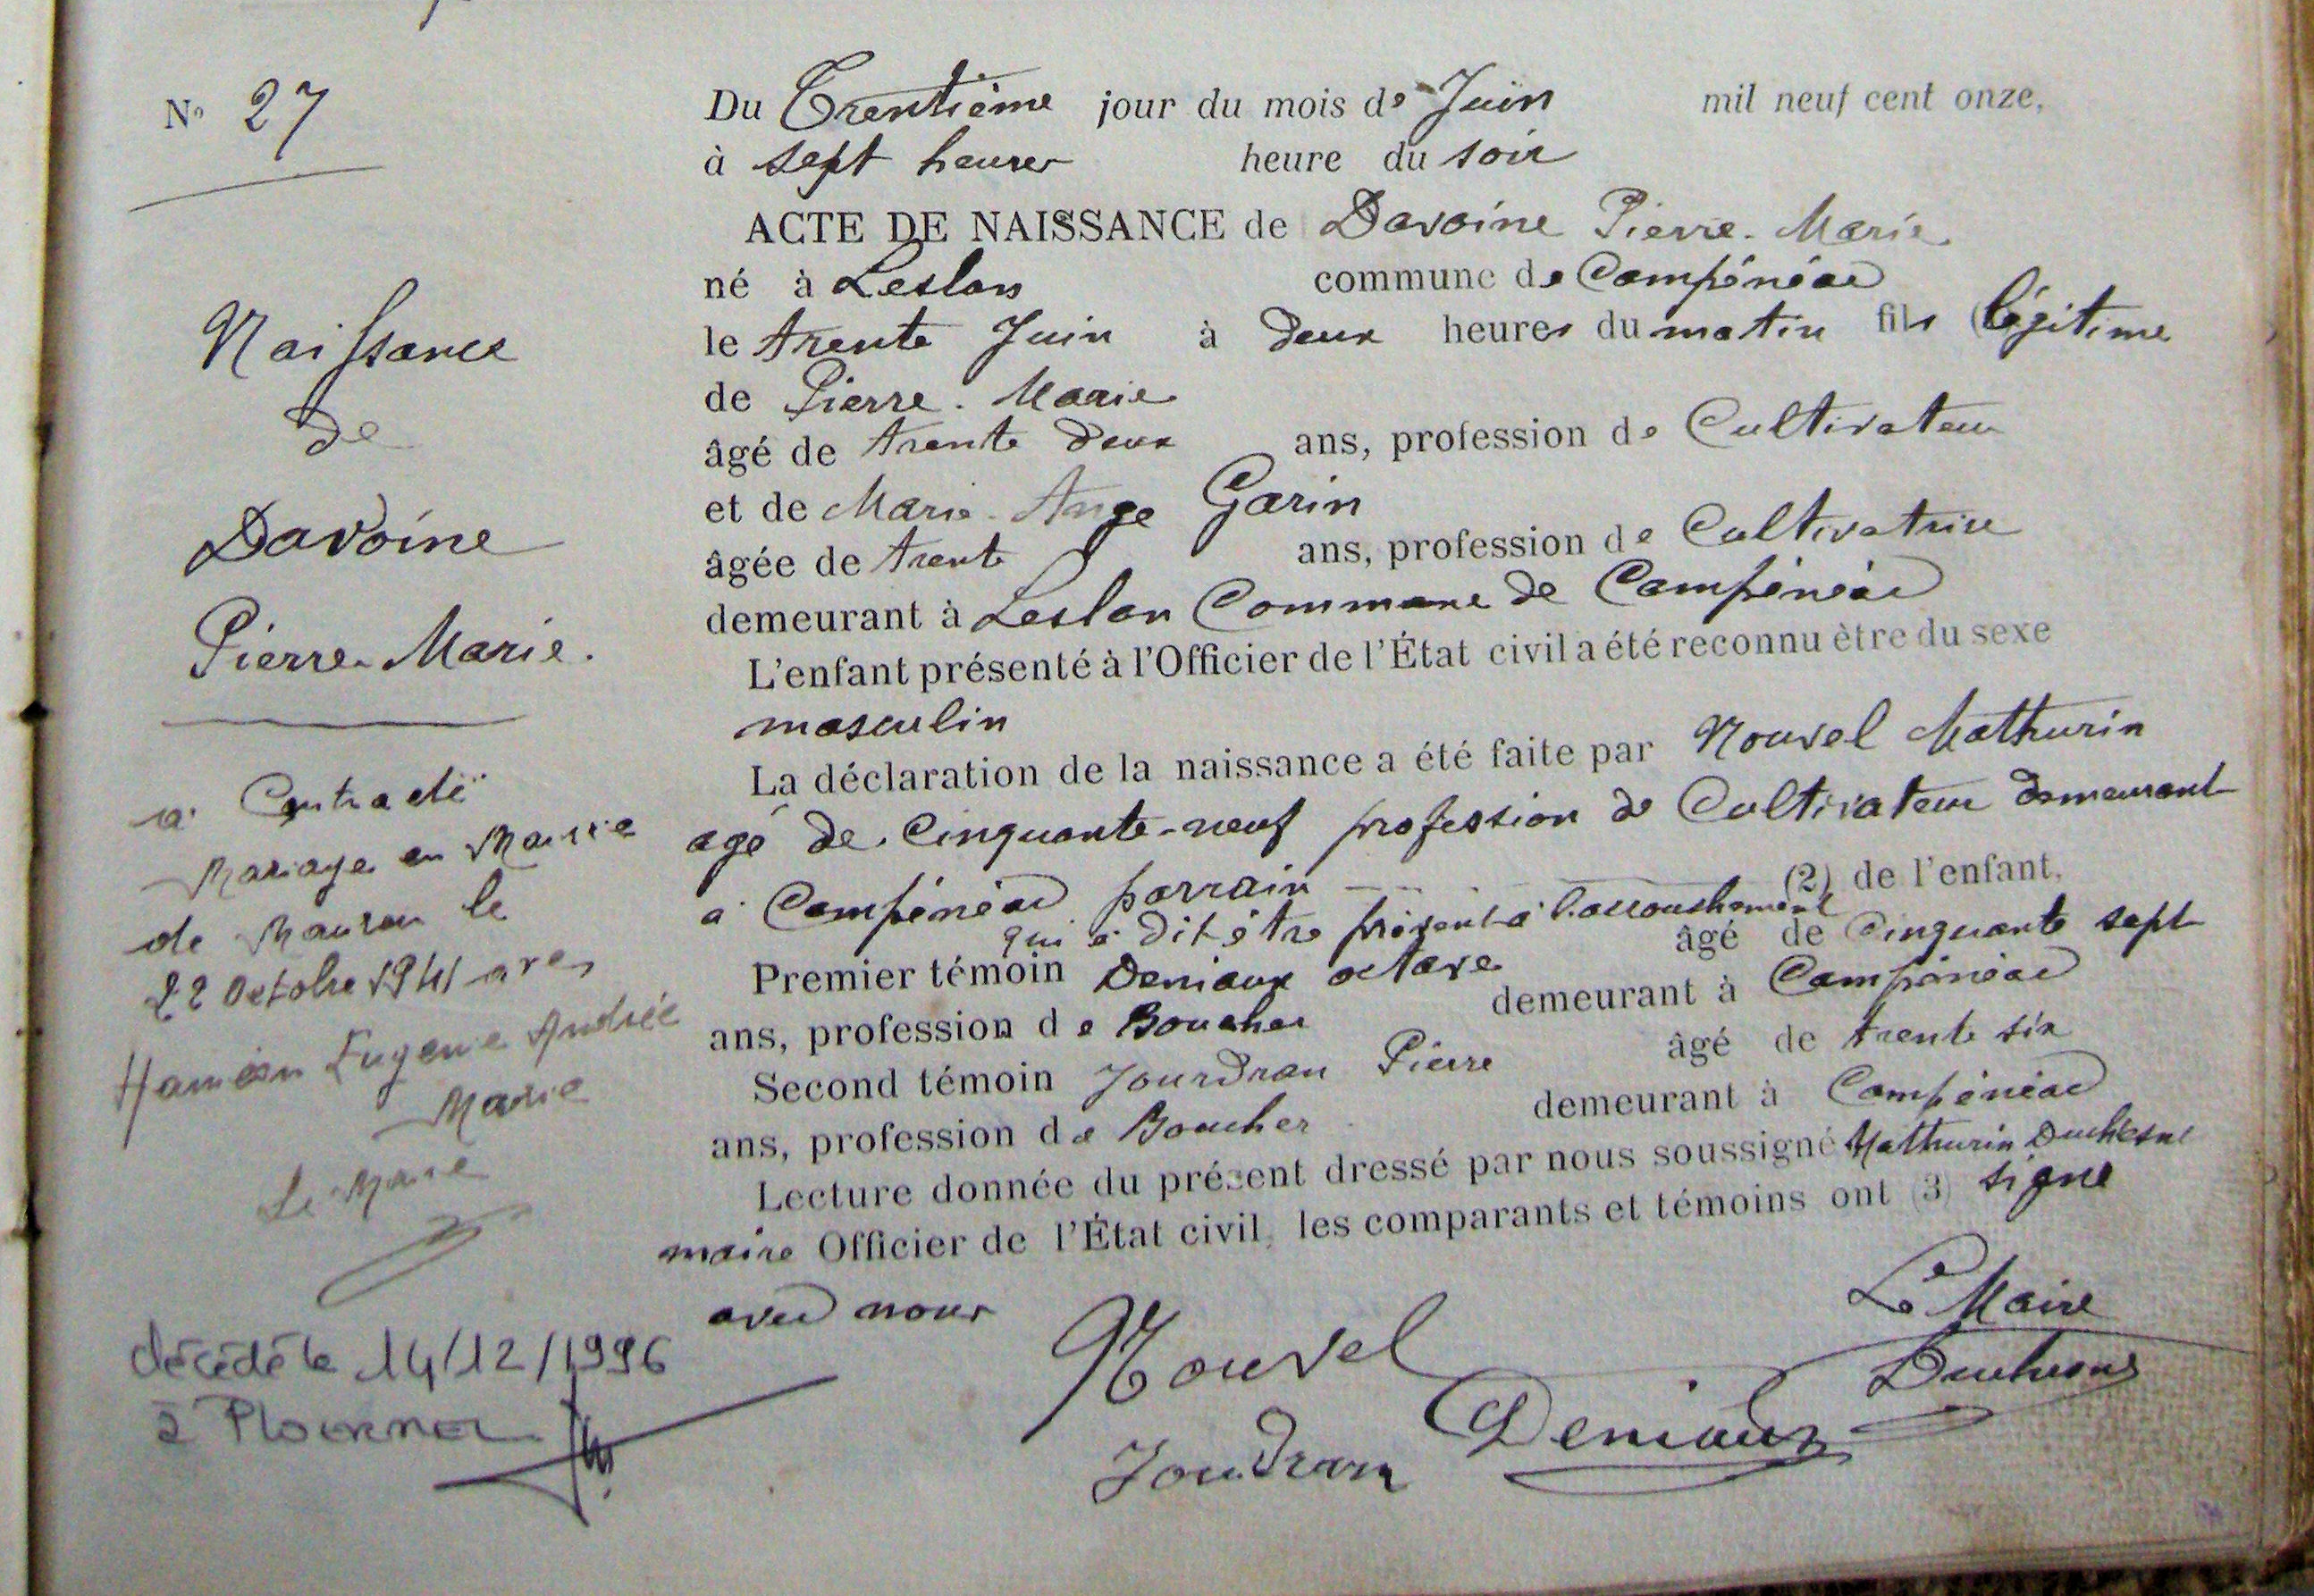 N° 27
Naissance
de
Davoine
Pierre-Marie.
a Contracté
Mariage en Mairie
de Mauron le
22 Octobre 1941 avec
Eugenie Andrée
Marie
Le Maire
décédé le 14/12/1996
à Ploermel
Du Trentième jour du mois de Juin mil neuf cent onze,
à sept heures heure du soir
ACTE DE NAISSANCE de Davoine Pierre-Marie
né à Leslan commune de Campénéac
le trente Juin à deux heures du matin fils légitime
de Pierre-Marie
âgé de trente deux ans, profession de Cultivateur
et de Marie-Ange Garin
âgée de trente ans, profession de Cultivatrice
demeurant à Leslan Commune de Campénéac
L'enfant présenté à l'Officier de l'État civil a été reconnu être du sexe
masculin
La déclaration de la naissance a été faite par Nouvel Mathurin
agé de cinquante-neuf profession de Cultivateur demeurant
a Campénéac parrain (2) de l'enfant,
qui a dit être présent à l'accouchement
Premier témoin Deniaux octave âgé de Cinquante sept
ans, profession de Boucher demeurant à Campénéac
Second témoin Jourdran Pierre âgé de trente six
ans, profession de Boucher demeurant à Campénéac
Lecture donnée du présent dressé par nous soussigné Mathurin Duchesne
maire Officier de l'État civil, les comparants et témoins ont (3) signé
avec nous
Le Maire
Nouvel
Duchesne
Deniaux
Jourdran